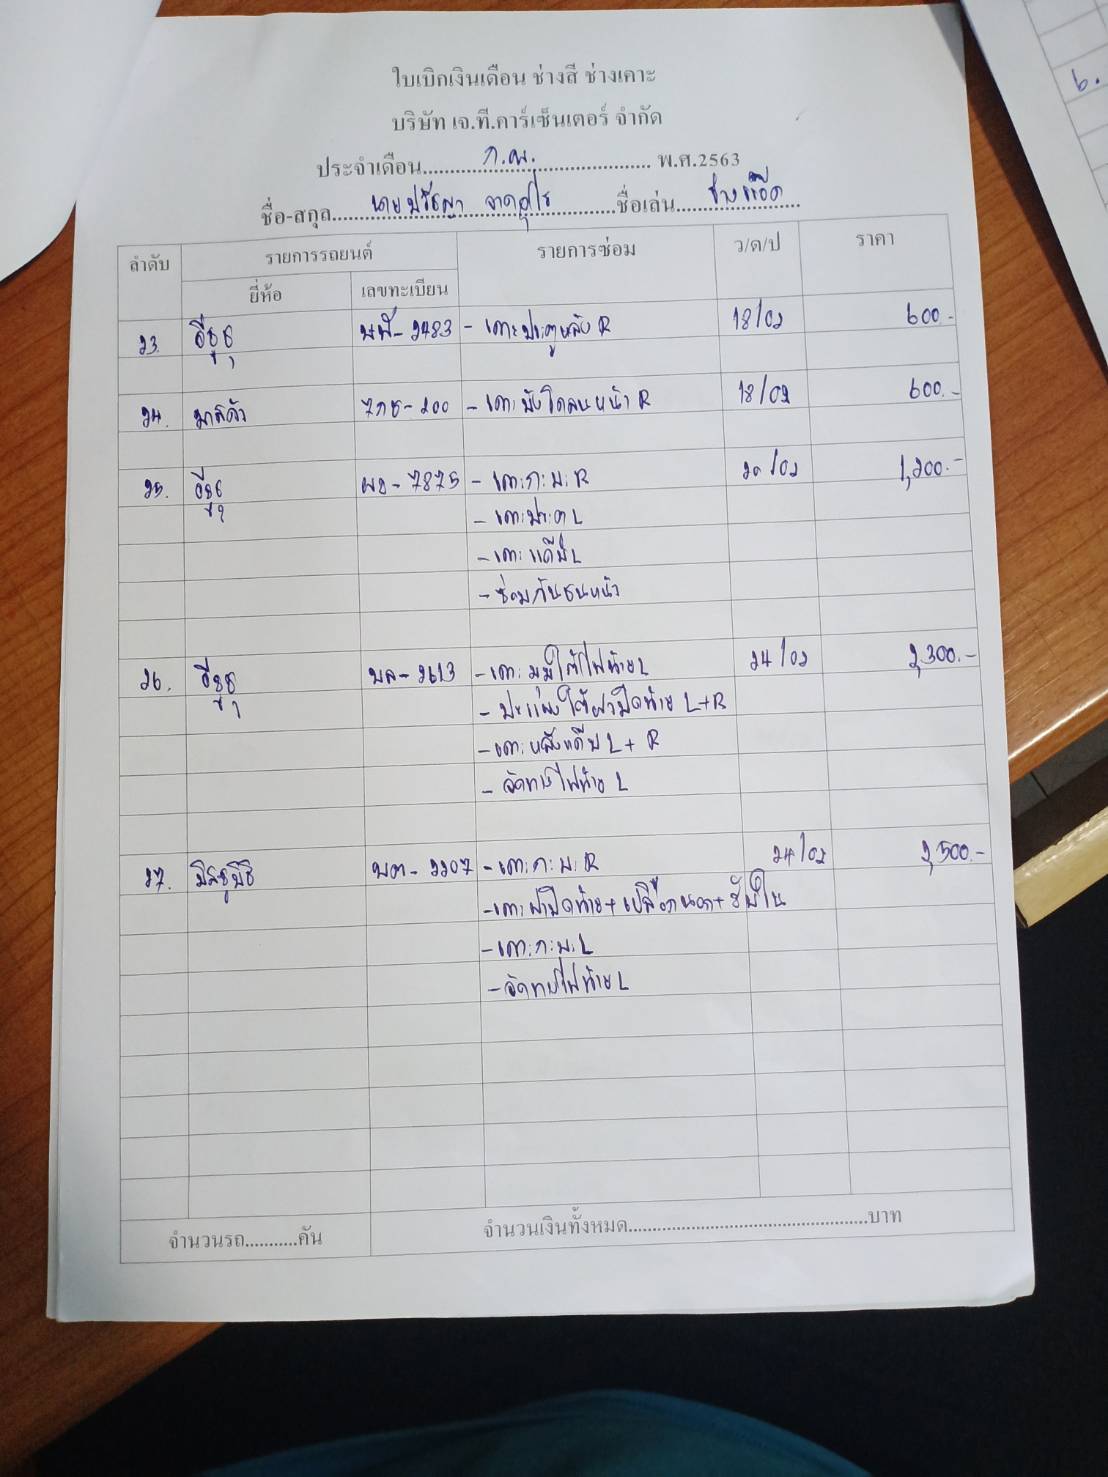 ใบเบิกเงินเดือน ช่างสี ช่างเคาะ
บริษัท เจ.ที.คาร์เซ็นเตอร์ จำกัด
ประจำเดือน.....ก.พ......พ.ศ.2563
ชื่อ-สกุล.....นายปรัชญา.....ชื่อเล่น.....ช่างแอ๊ด
ลำดับ รายการรถยนต์ รายการซ่อม ว/ด/ป ราคา
ยี่ห้อ เลขทะเบียน
23. อีซูซุ 2483 - เคาะประตูหลัง R 18/02 600.-
24. มาสด้า 200 - เคาะบังโคลนหน้า R 18/02 600.-
25. อีซูซุ 7875 - เคาะ ก:บ: R 20/02 1,200.-
- เคาะประตู L
- เคาะแค๊บ L
- ซ่อมกันชนหน้า
26. อีซูซุ บล-2613 - เคาะมุมใต้ไฟท้าย L 24/02 2,300.-
- ปะแผงใต้ฝาปิดท้าย L+R
- เคาะหลังแค๊บ L + R
- จัดทรงไฟท้าย L
27. มิตซูบิชิ บต-2207 - เคาะ ก:บ: R 24/02 2,500.-
- เคาะฝาปิดท้าย+เปลือกนอก+ซับใน
- เคาะ ก:บ: L
- จัดทรงไฟท้าย L
จำนวนรถ...........คัน จำนวนเงินทั้งหมด.....บาท
6.